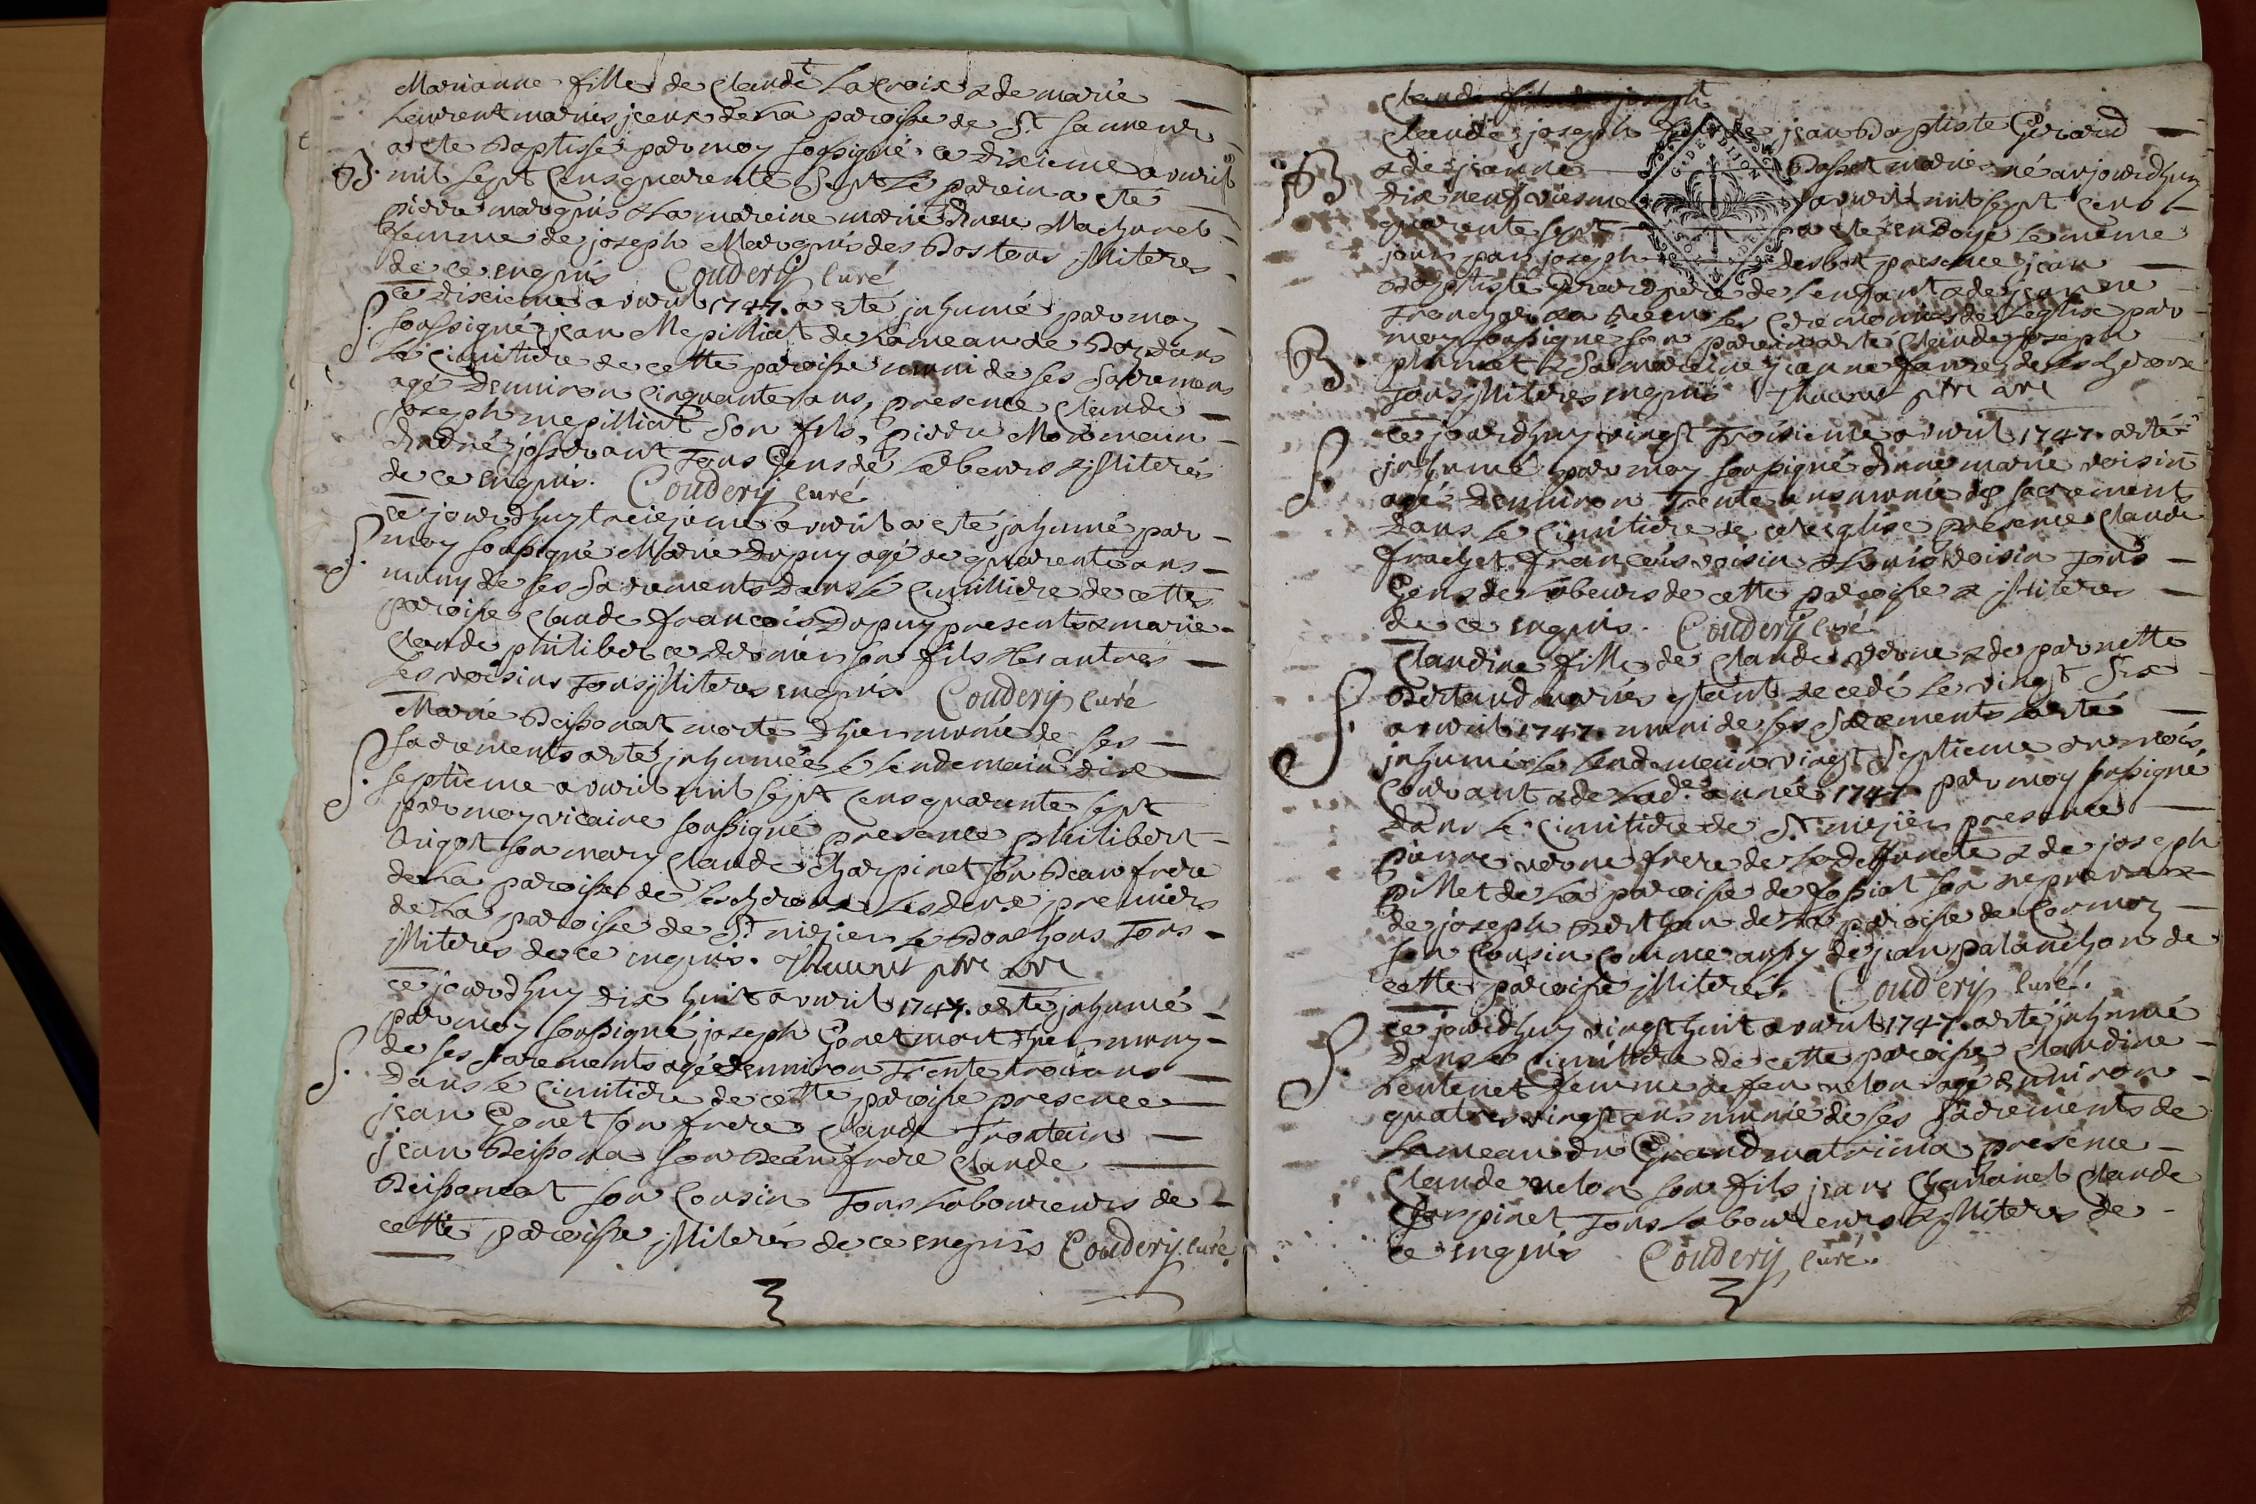 Marianne fille de Claude Lacroix & de marie
Laurent mariés jceux de la paroisse de St sauveur
a este Baptisse par moy soussigné ce dixieme avuril
B. mil sept Cens quarente sept le parein a eté
pierre marquis & la mareine marie Anne
femme de joseph Marquis des Illiteres
de ce enquis Coudery Curé
S. ce dixieme avuril 1747. a eté jnhumé par moy
soussigné jean Mepilliat de hameau de dans
le Cimitiere de cette paroisse muni de ses Sacremens
agé Denuiron Cinquante ans, presence Claude
joseph mepilliat son fils, pierre Moremain
André josserant Tous Gens de Labeurs Illiterés
de ce enquis. Coudery Curé
S. ce jourdhuy treizieme avuril a esté jnhumé par
moy soussigné Marie Dupuy agé de quarente ans
muny de ses Sacrements dans le Cimittiere de cette
paroisse Claude francois Dupuy presents & marie
Claude philibert ce dernier son fils & les autres
ses voisins Tous Illiteres enquis Coudery Curé
S. Marie Beissonat morte Dhier munie de ses
sacrements a eté jnhumée le lendemain dix
septieme avuril mil sept Cens quarente sept
par moy vicaire soussigné presence philibert
Trigot son mary Claude Charpinet son Beau frere
de la paroisse de Lescheroux Les deux premiers
de la paroisse de St nizier le Bouchoux Tous
Illiteres de ce enquis. ptre vre
S. ce jourdhuy dix huit avuril 1747. a eté jnhumé
par moy soussigné joseph Gonet mort Dhier muny
de ses sacrements agé denuiron Trente trois ans
dans le Cimitiere de cette paroisse presence
jean Gonet son frere Claude Frontain
jean Beissona son Beau frere Claude
Beissoneat son Cousin Tous Laboureurs de
cette paroisse Illiterés de ce enquis Coudery Curé
Claude fils de joseph
Claude joseph fils de jean Baptiste Girard
B & de jeanne Basset mariés né aujourdhuy
dix neufviesme avuril mil sept Cens
quarente sept a eté endoyé le meme
jour par joseph desbot presence jean
Baptiste Girard pere de lenfant & de jeanne
B. & a receu les ceremonies de Leglise par
moy soussigné son parein a eté Claude joseph
& sa mareine jeanne favre de Lescheroux
Tous Illiteres enquis ptre vre
S. ce jourdhuy vingt Troisieme avuril 1747. a eté
jnhumé par moy soussigné Anne marie voisin
agé Denuiron Trente ans munie des sacrements
dans le Cimitiere de cet eglise presence Claude
frachet francois voisin & Louis voisin Tous
Gens de Labeurs de cette paroisse & Illiteres
de ce enquis. Coudery Curé
S. Claudine fille de Claude verne & de parnette
Bertaud mariés decedé le vingt Six
avuril 1747. muni de ses Sacrements a eté
jnhumé le Lendemain vingt Septieme du mois
Courant & de lade. année 1747. par moy soussigné
dans le Cimitiere de St. nizier presence
pierre verne frere de la deffuncte & de joseph
pillet de la paroisse de fossiat son nepveu
de joseph Berthau de la paroisse de Cormoz
son Cousin Comme aussy de jean palanchon de
cette paroisse Illiteres. Coudery Curé.
S. ce jourdhuy vingt huit avuril 1747. a eté jnhumé
dans le Cimitiere de cette paroisse Claudine
femme de feu velon agé denuiron
quatre vingt ans munie de ses sacrements de
hameau du Grand matrinia presence
Claude velon son fils jean Chatanet Claude
Charpinet Tous Laboureurs & Illiteres de
ce enquis Coudery Curé.